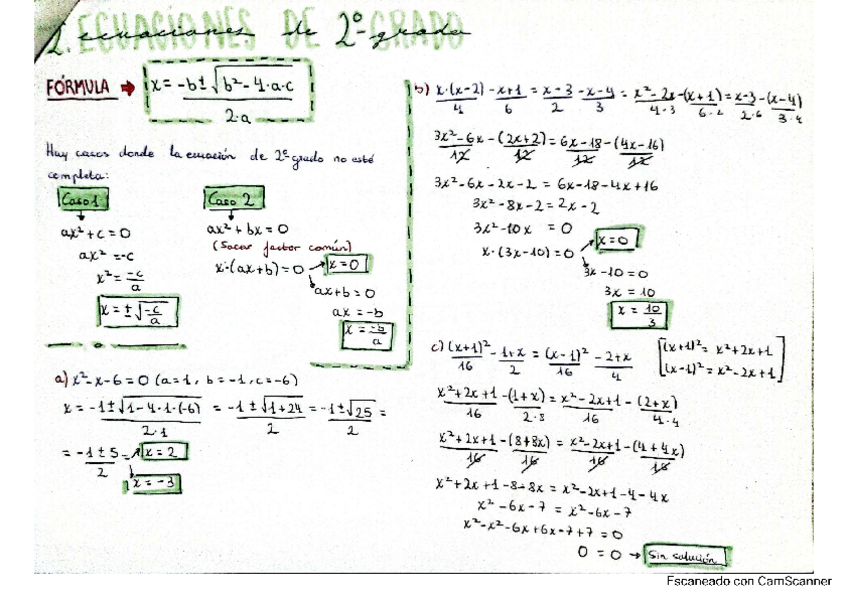 1. ECUACIONES DE 2º GRADO
ecuaciones de 2º grado
FÓRMULA → x = -b ± √(b² - 4·a·c) / 2·a
Hay casos donde la ecuación de 2º grado no esté
completa:
Caso 1
ax² + c = 0
ax² = -c
x² = -c/a
x = ± √(-c/a)
Caso 2
ax² + bx = 0
(Sacar factor común)
x·(ax+b) = 0 → x = 0
ax + b = 0
ax = -b
x = -b/a
a) x² - x - 6 = 0 (a = 1, b = -1, c = -6)
x = -1 ± √(1 - 4·1·(-6)) / 2·1 = -1 ± √(1+24) / 2 = -1 ± √25 / 2 =
= -1 ± 5 / 2 → x = 2
x = -3
b) x·(x-2)/4 - x+1/6 = x-3/2 - x-4/3 = x²-2x/4·3 - (x+1)/6·2 = x-3/2·6 - (x-4)/3·4
3x²-6x/12 - (2x+2)/12 = 6x-18/12 - (4x-16)/12
3x² - 6x - 2x - 2 = 6x - 18 - 4x + 16
3x² - 8x - 2 = 2x - 2
3x² - 10x = 0
x·(3x-10) = 0 → x = 0
3x - 10 = 0
3x = 10
x = 10/3
c) (x+1)²/16 - 1+x/2 = (x-1)²/16 - 2+x/4 [(x+1)² = x²+2x+1
(x-1)² = x²-2x+1]
x²+2x+1/16 - (1+x)/2·8 = x²-2x+1/16 - (2+x)/4·4
x²+2x+1/16 - (8+8x)/16 = x²-2x+1/16 - (4+4x)/16
x² + 2x + 1 - 8 - 8x = x² - 2x + 1 - 4 - 4x
x² - 6x - 7 = x² - 6x - 7
x² - x² - 6x + 6x - 7 + 7 = 0
0 = 0 → Sin solución
Escaneado con CamScanner